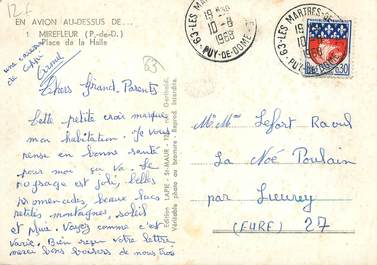 12 F
EN AVION AU-DESSUS DE...
1 MIREFLEUR (P.-de-D.)
Place de la Halle
une caresse
de
63
Chers Grand-Parents
Cette petite croix marque
mon habitation. Je vous
pense en bonne santé
pour moi ça va. Le
paysage est joli, belles
promenades, beaux lacs
petites montagnes, soleil
et pluie. Voyez comme c'est
varié. Bien reçu votre lettre
merci bons baisers de nous trois
Edition LAPIE - St-MAUR
Véritable photo au bromure - Reprod. interdite.
63-LES MARTRES-DE-
19 H
10-8
1968
PUY-DE-DOME
63-LES MARTRES-DE-
19 H
10-
1968
PUY-DE-DOME
0,30
Mr Mme Lefort Raoul
La Noë Poulain
par Lieurey
(EURE) 27